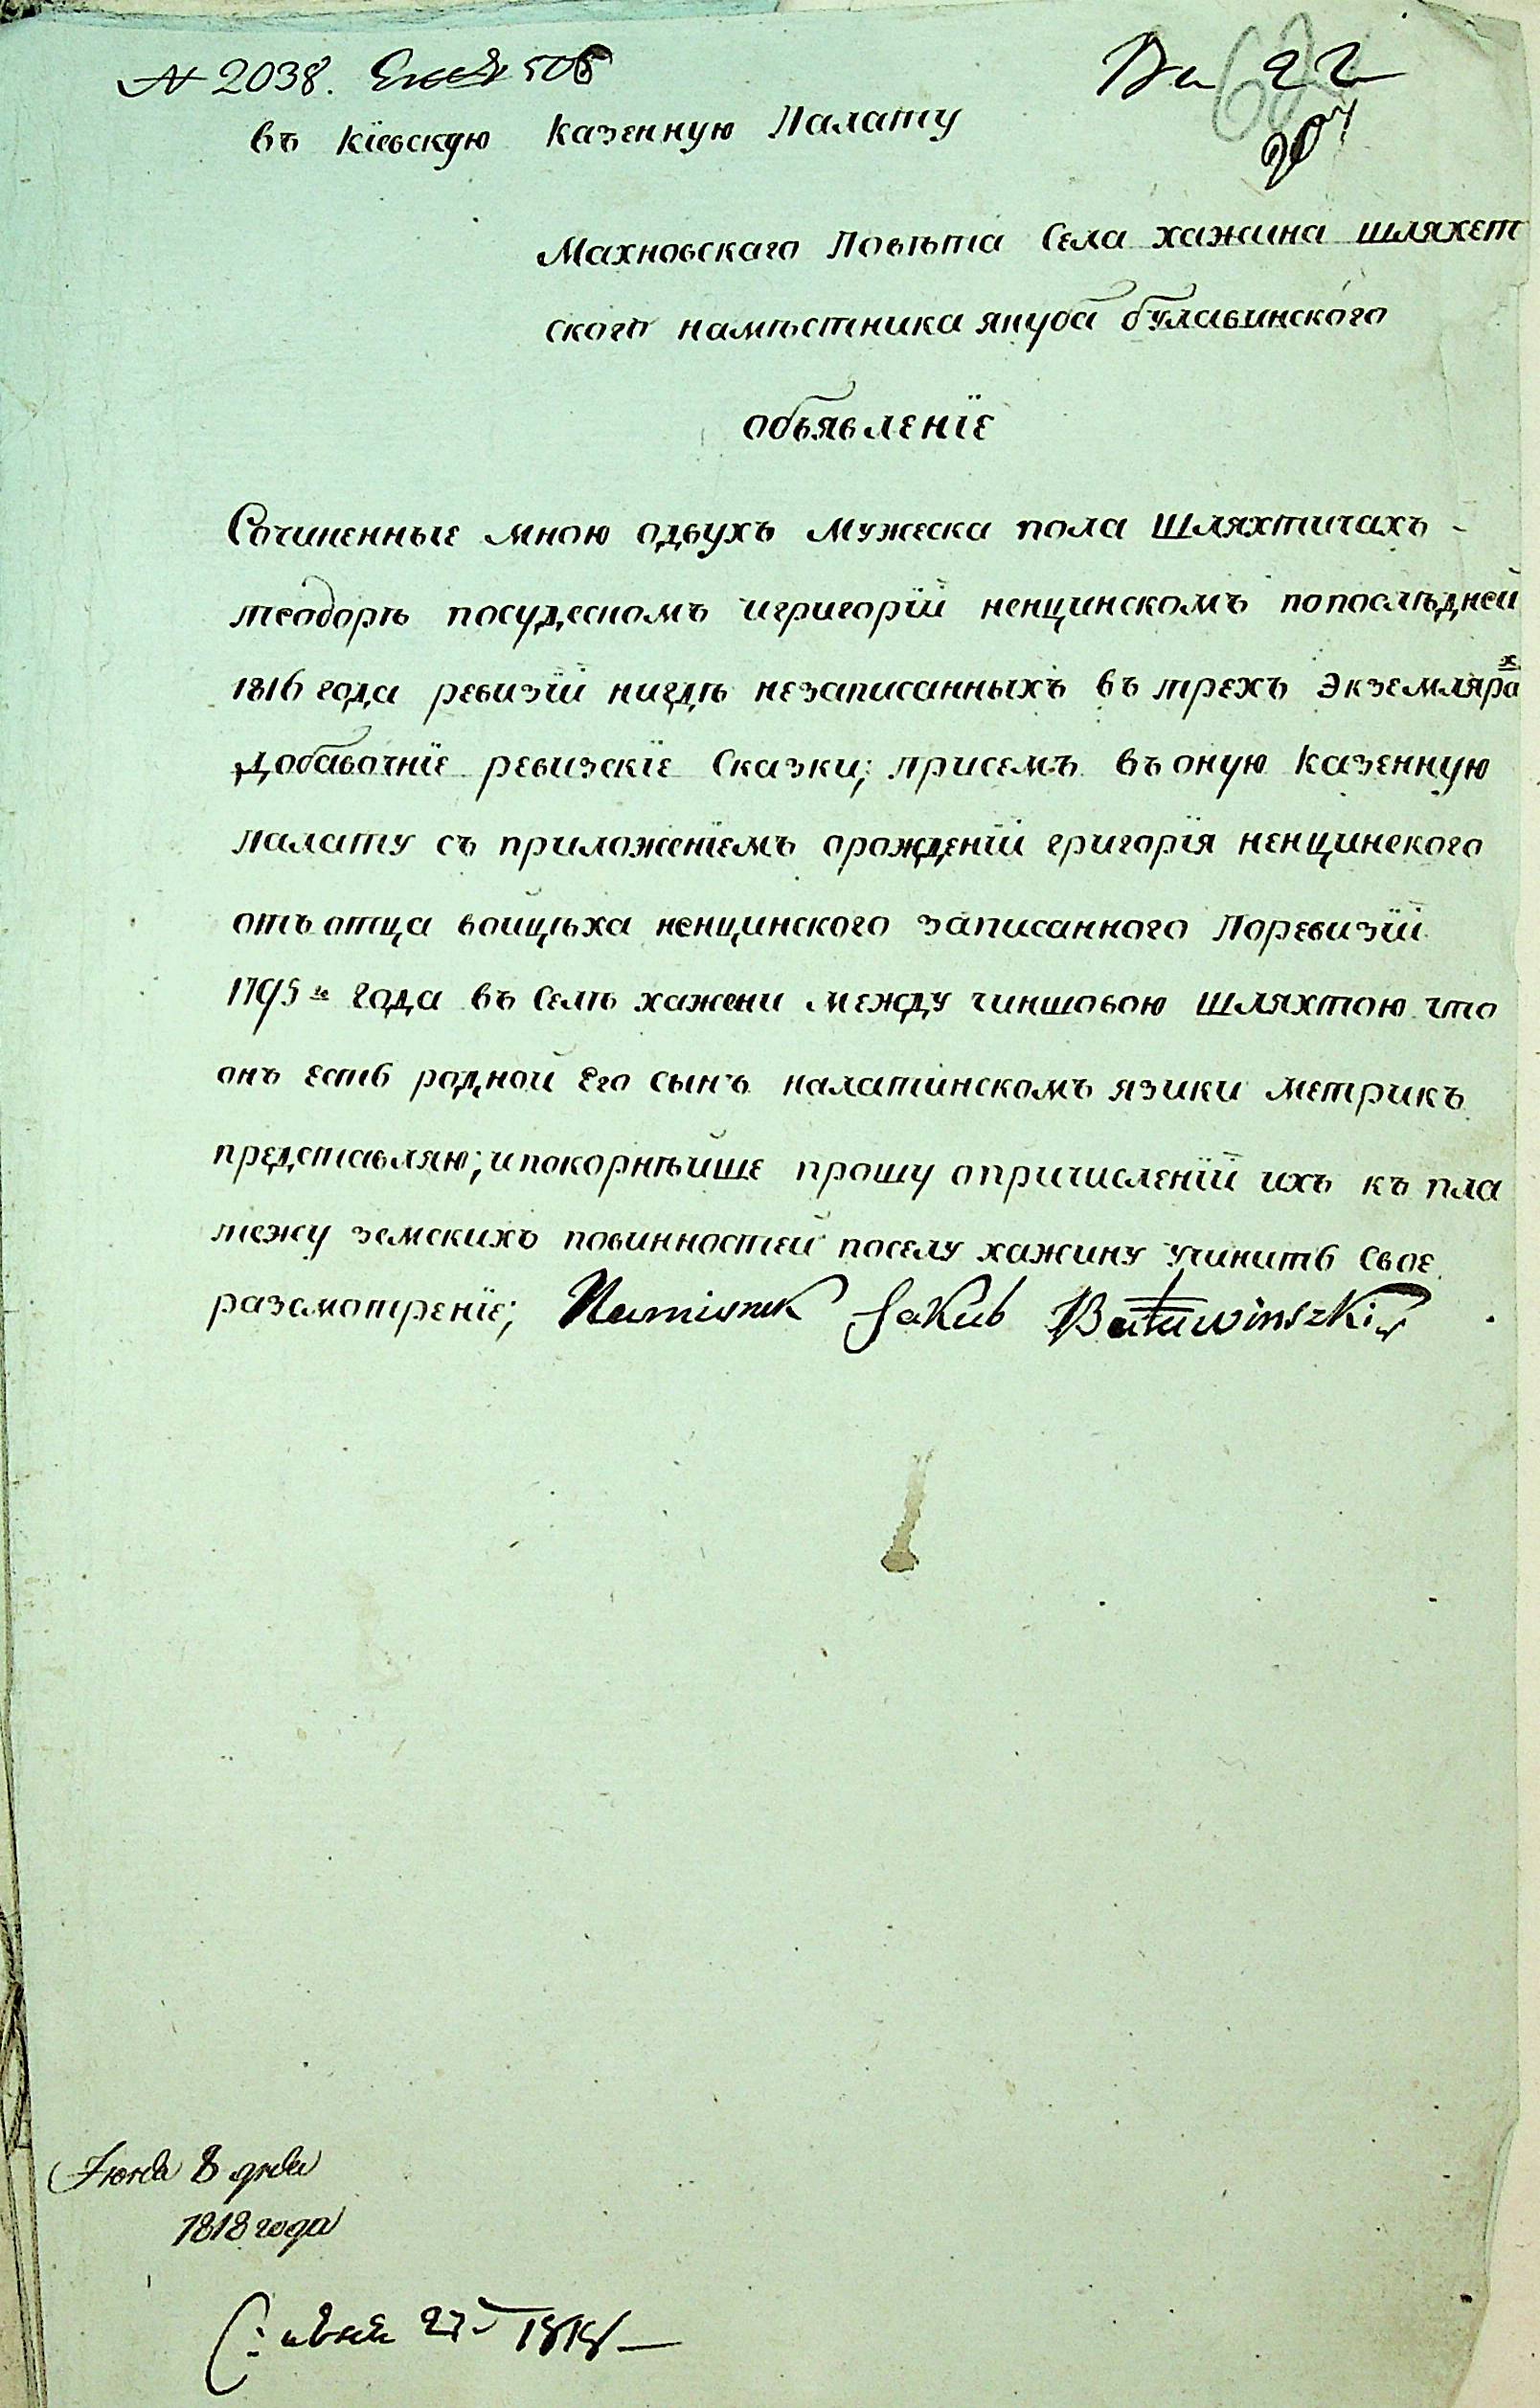 № 2038.
22
207
въ Кїевскую Казенную Палату
Махновскаго Повѣта Села хажина шляхет
ского намѣстника якуба булавинского
объявленїе
Сочиненные мною одвухъ мужеска пола шляхтичахъ -
теодорѣ посудесномъ игригорїй ненцинскомъ попослѣдней
1816 года ревизїй нигдѣ незаписанныхъ въ трехъ Экземляра х
Добавочнїе ревизскїе Сказки; присемъ въ оную Казенную
палату съ приложенїемъ орожденїй григорїя ненцинского
отъ отца войцѣха ненцинского записанного Поревизїй
1795го года въ Селѣ хажени между чиншовою шляхтою что
онъ есть родной Его сынъ налатинскомъ язики метрикъ
представляю; ипокорнѣйше прошу опричисленїй ихъ къ пла
тежу земскихъ повинностей поселу хажину учинить Свое
разсмотренїе; Namisnik Jakub Buławinszki
Июня 8 дня
1818 года
27 1818